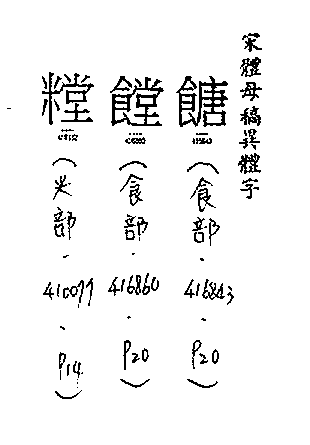 宋體母稿異體字
餹(食部.416843.P20)
饄(食部.416860.P20)
糛(米部.410077.P14)